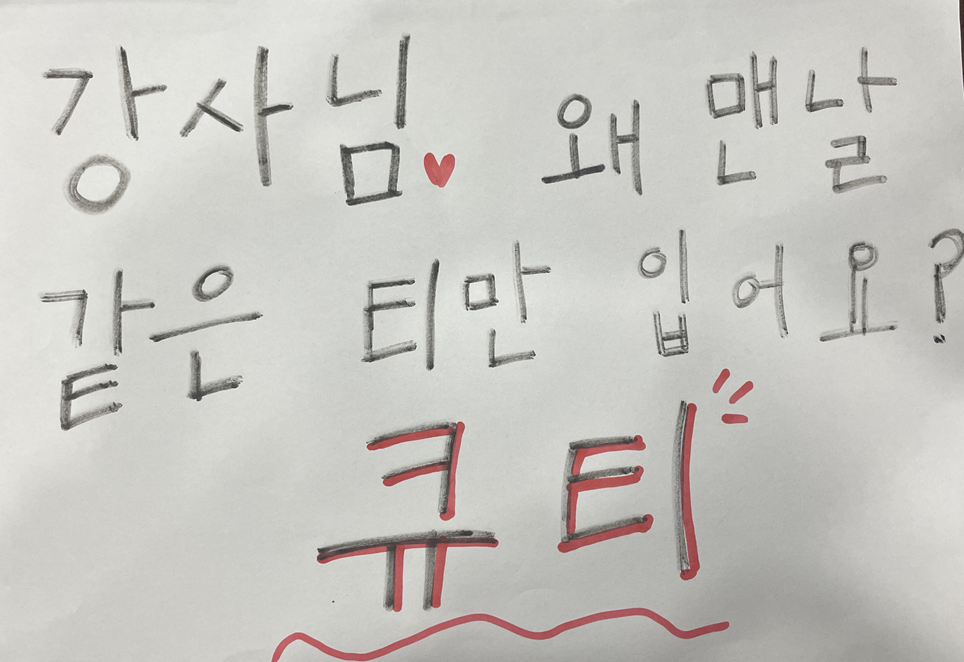 강사님♥ 왜 맨날
같은 티만 입어요?
큐티